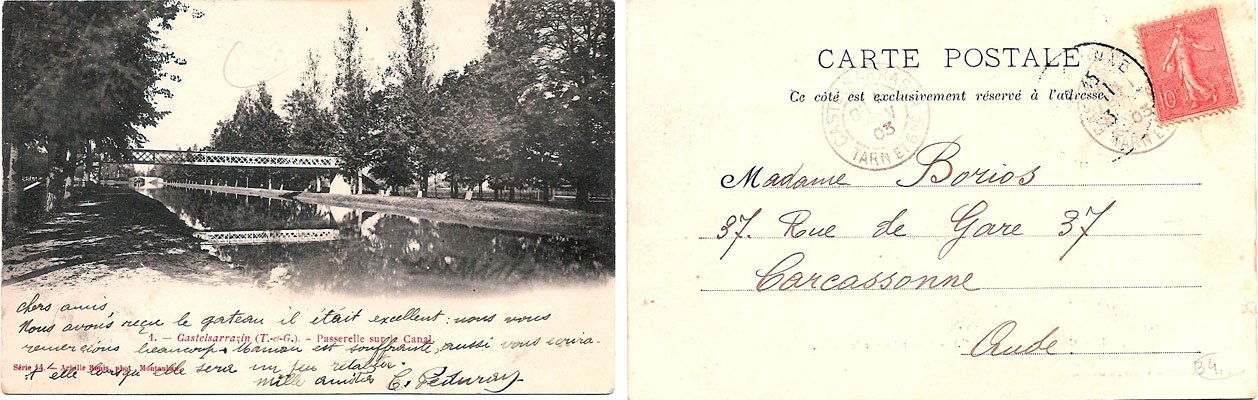 chers amis,
Nous avons reçu le gateau il était excellent: nous vous
1. — Castelsarrazin (T.-et-G.). — Passerelle sur le Canal
remercions beaucoup. Maman est souffrante, aussi vous écrira-
Série 14. — Achille Bouis, phot., Montauban.
t elle lorsqu'elle sera un peu rétablie.
Mille amitiés
CARTE POSTALE
Ce côté est exclusivement réservé à l'adresse.
CASTELSARRASIN
03
TARN ET GNE
10
Madame Borios
37. Rue de Gare 37
Carcassonne
Aude.
34.